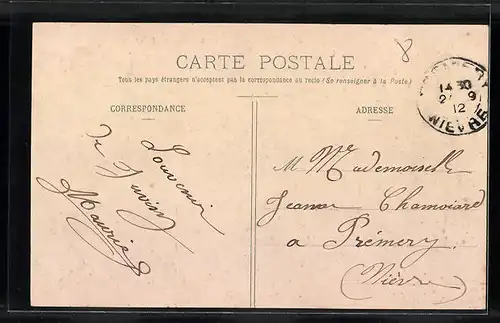 8
CARTE POSTALE
Tous les pays étrangers n'acceptent pas la correspondance au recto (Se renseigner à la Poste)
CORRESPONDANCE
Souvenir
de
Maurice
ADRESSE
14 30
12
NIÈVRE
M Mademoiselle
Jeanne Chamoiard
a Prémery.
(Nièvre)